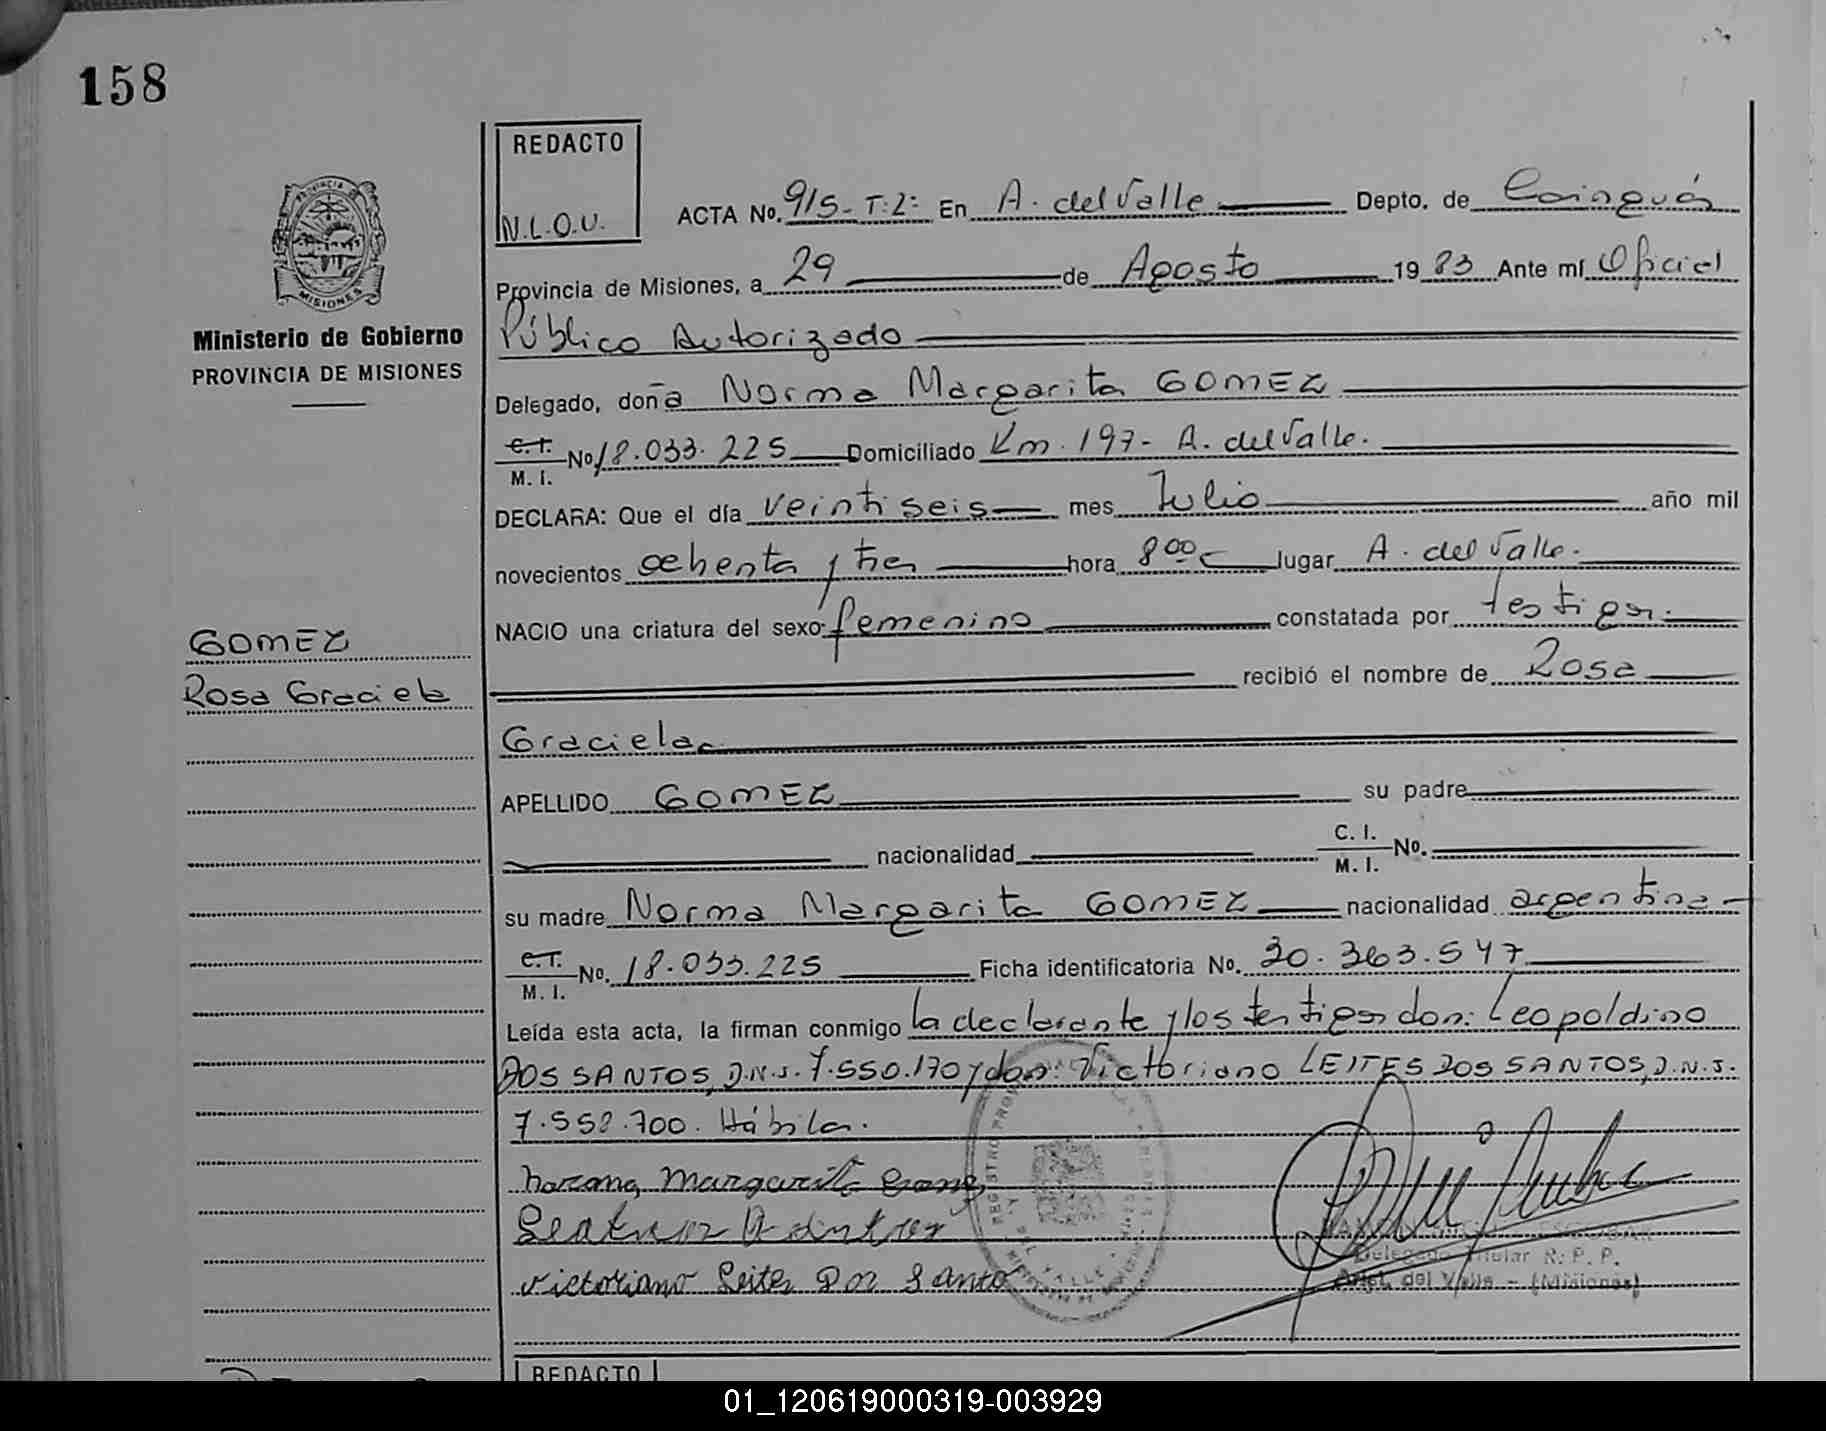 158
REDACTO
N.L.O.U.
ACTA No. 915-T:2: En A. del Valle Depto. de Cainguás
Provincia de Misiones, a 29 de Agosto 1983 Ante mí Oficial
Público Autorizado
MISIONES
Ministerio de Gobierno
PROVINCIA DE MISIONES
Delegado, doña Norma Margarita GOMEZ
C.I. M. I. No 18.033.225 Domiciliado Km. 197- A. del Valle.
DECLARA: Que el día veintiseis mes Julio año mil
novecientos ochenta y tres hora 8 00 lugar A. del Valle.
NACIO una criatura del sexo femenino constatada por testigos.
GOMEZ
Rosa Graciela
recibió el nombre de Rosa
Graciela
APELLIDO GOMEZ su padre
nacionalidad C. I. M. I. No.
su madre Norma Margarita GOMEZ nacionalidad argentina
M. I. No. 18.033.225 Ficha identificatoria No. 30.363.547
Leída esta acta, la firman conmigo la declarante y los testigos don: Leopoldino
DOS SANTOS, D.N.I. 7.550.170 y don: Victoriano LEITES DOS SANTOS, D.N.I.
7.558.700. Hábiles.
Margarita
Victoriano Leites Dos Santo
Delegado Titular R. P. P.
Arist. del Valle - (Misiones)
REDACTO
01_120619000319-003929